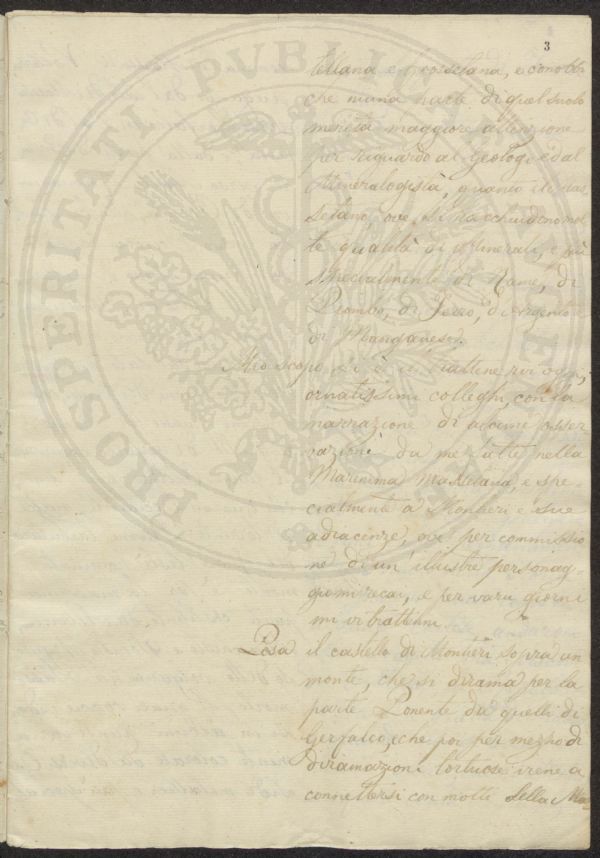 3
tellana e Grossetana, e conobbi
che niuna parte di quel suolo
merita maggiore attenzione
per riguardo al Geologo ed al
Mineralogista, quanto il Mas
setano ove si racchiudono mol
te qualità di Minerali, e più
specialmente di Rame, di
Piombo, di Ferro, d'Argento e
di Manganese.
Mio scopo si è intrattenervi oggi,
ornatissimi colleghi, con la
narrazione di alcune osser
vazioni da me fatte nella
Maremma Massetana, e spe
cialmente a Montieri e sue
adiacenze, ove per commissio
ne di un' illustre personag
gio mi recai, e per varii giorni
mi vi trattenni.
Posa il castello di Montieri sopra un
monte, che si dirama per la
parte Ponente da quelli di
Gerfalco, e che poi per mezzo di
diramazioni tortuose viene a
connettersi con molti della Ma
PROSPERITATI PUBLICAE AUGENDAE